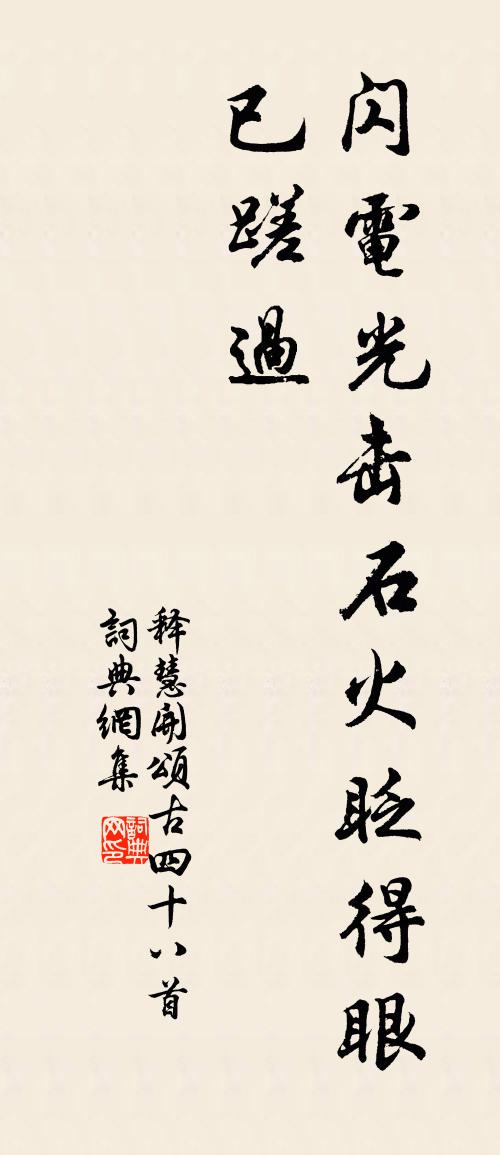 閃電光击石火眨得眼
已蹉過
释慧開頌古四十八首
詞典網集
詞典
网印